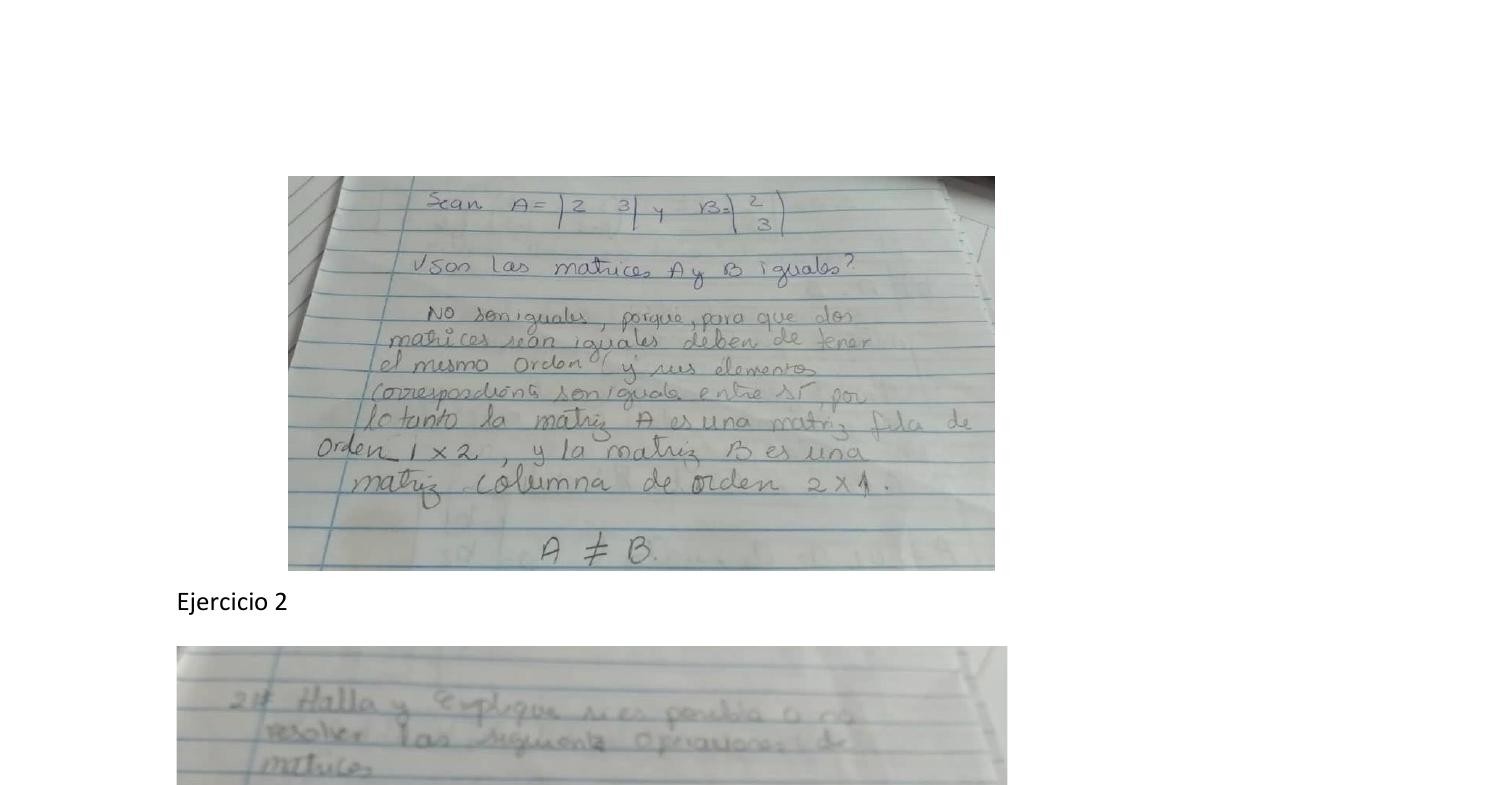 Sean A= |2 3| y B=|2 3|
Son las matrices A y B iguales?
No son iguales, porque, para que dos
matrices sean iguales deben de tener
el mesmo orden y sus elementos
son iguales entre sí, por
lo tanto la matriz A es una matriz fila de
orden 1 x 2, y la matriz B es una
matriz columna de orden 2 x 1.
A ≠ B.
Ejercicio 2
Halla y explique si es posible o no
resolver las siguiente operaciones de
matrices